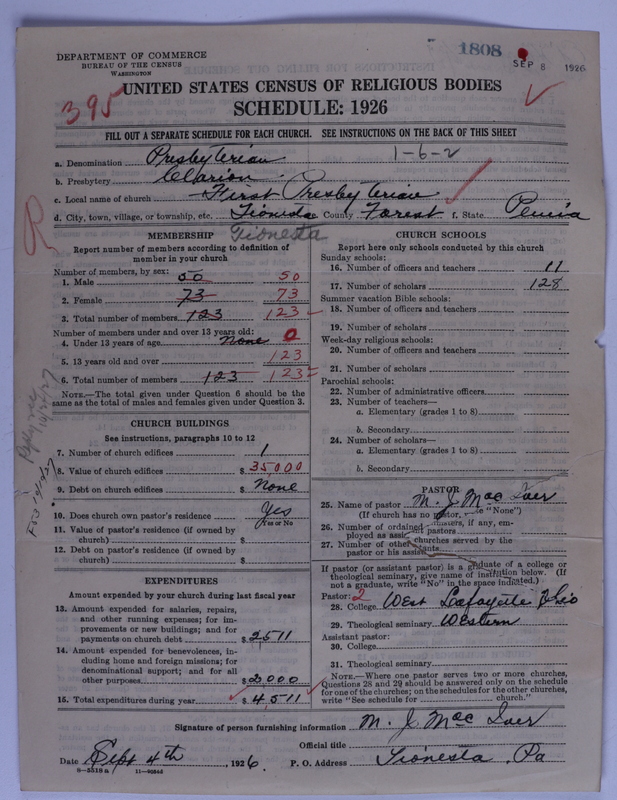 1808
SEP 8 1926
DEPARTMENT OF COMMERCE
BUREAU OF THE CENSUS
WASHINGTON
395
UNITED STATES CENSUS OF RELIGIOUS BODIES
SCHEDULE: 1926
FILL OUT A SEPARATE SCHEDULE FOR EACH CHURCH. SEE INSTRUCTIONS ON THE BACK OF THIS SHEET
a. Denomination Presbyterian 1-6-2
b. Presbytery Clarion
c. Local name of church First Presbyterian
R
d. City, town, village, or township, etc. Tionesta e. County Forest f. State Penna
Tionesta
MEMBERSHIP
Report number of members according to definition of
member in your church
Number of members, by sex:
1. Male 50 50
2. Female 73 73
3. Total number of members 123 123
Number of members under and over 13 years old:
4. Under 13 years of age None 0
5. 13 years old and over 123
6. Total number of members 123 123
NOTE.—The total given under Question 6 should be
same as the total of males and females given under Question 3.
CHURCH BUILDINGS
See instructions, paragraphs 10 to 12
7. Number of church edifices 1
8. Value of church edifices $ 35,000
9. Debt on church edifices $ None
10. Does church own pastor's residence Yes
Yes or No
11. Value of pastor's residence (if owned by
church) $
12. Debt on pastor's residence (if owned by
church) $
EXPENDITURES
Amount expended by your church during last fiscal year
13. Amount expended for salaries, repairs,
and other running expenses; for im-
provements or new buildings; and for
payments on church debt $ 2511
14. Amount expended for benevolences, in-
cluding home and foreign missions; for
denominational support; and for all
other purposes $ 2000
15. Total expenditures during year $ 4,511
CHURCH SCHOOLS
Report here only schools conducted by this church
Sunday schools:
16. Number of officers and teachers 11
17. Number of scholars 128
Summer vacation Bible schools:
18. Number of officers and teachers
19. Number of scholars
Week-day religious schools:
20. Number of officers and teachers
21. Number of scholars
Parochial schools:
22. Number of administrative officers
23. Number of teachers—
a. Elementary (grades 1 to 8)
b. Secondary
24. Number of scholars—
a. Elementary (grades 1 to 8)
b. Secondary
PASTOR
25. Name of pastor M. J. Mac
(If church has no pastor, "None")
26. Number of ordained if any, em-
ployed as pastors
27. Number of other churches served by the
pastor or his
If pastor (or assistant pastor) is a graduate of a college or
theological seminary, give name of institution below. (If
not a graduate, write "No" in the space indicated.)
Pastor: 2
28. College West Lafayette Ohio
29. Theological seminary Western
Assistant pastor:
30. College
31. Theological seminary
NOTE.—Where one pastor serves two or more churches,
Questions 28 and 29 should be answered only on the schedule
for one of the churches; on the schedules for the other churches,
write "See schedule for church."
Signature of person furnishing information M. J. Mac
Official title
Date Sept 4th, 1926 P. O. Address Tionesta, Pa
8-5518 a